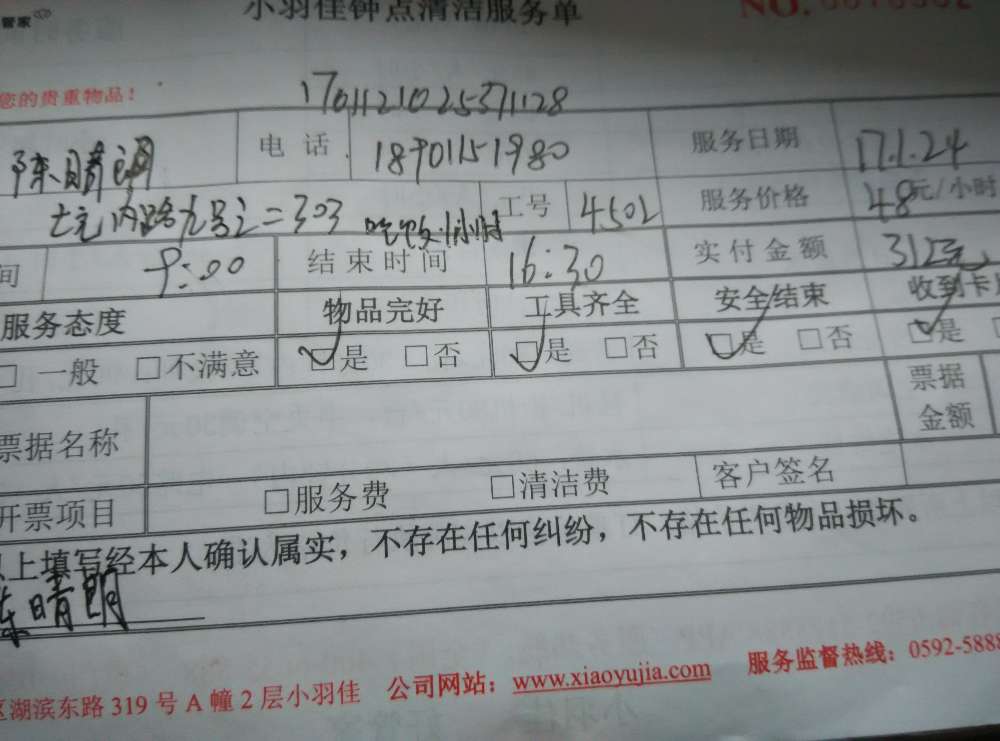 管家
小羽佳钟点清洁服务单
NO.
您的贵重物品！
1701121025371128
陈晴朗 电 话 18901151980 服务日期 17.1.24
303 吃饭1小时 工号 4502 服务价格 48元/小时
间 9:00 结束时间 16:30 实付金额 312元
服务态度 物品完好 工具齐全 安全结束 收到卡
□ 一般 □不满意 □是 □否 □是 □否 □是 □否 □是
票据名称 票据金额
开票项目 □服务费 □清洁费 客户签名
以上填写经本人确认属实，不存在任何纠纷，不存在任何物品损坏。
陈晴朗
区湖滨东路 319 号 A 幢 2 层小羽佳 公司网站：www.xiaoyujia.com 服务监督热线：0592-5888